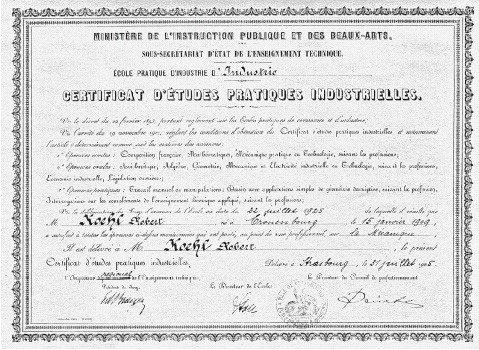 MINISTÈRE DE L'INSTRUCTION PUBLIQUE ET DES BEAUX-ARTS.
SOUS-SECRÉTARIAT D'ÉTAT DE L'ENSEIGNEMENT TECHNIQUE.
ÉCOLE PRATIQUE D'INDUSTRIE D'Industrie
CERTIFICAT D'ÉTUDES PRATIQUES INDUSTRIELLES.
Vu le décret du portant règlement sur les Écoles pratiques de commerce et d'industrie;
Vu l'arrêté du 19 novembre réglant les conditions d'obtention du Certificat d'études pratiques industrielles et notamment
l'article déterminant comme suit les matières des examens:
Épreuves écrites: Composition française, Mathématiques, Mécanique pratique ou Technologie, suivant les professions;
Épreuves orales: Arithmétique, Algèbre, Géométrie, Mécanique et Électricité industrielle ou Technologie, suivant les professions,
Économie industrielle, Législation ouvrière;
Épreuves pratiques: Travail manuel et manipulations; Dessin avec applications simples de géométrie descriptive, suivant les professions,
Interrogations sur les compléments de l'enseignement théorique appliqué, suivant les professions;
Vu la délibération du Jury d'examen de l'École en date du 22 juillet 1925 de laquelle il résulte que
M Koehl Robert né à le 15 janvier 1909
a satisfait à toutes les épreuves au point de vue professionnel, sur la Mécanique
Il est délivré à M Koehl Robert le présent
Certificat d'études pratiques industrielles. Délivré à Strasbourg, le 31 juillet 1925
L'Inspecteur régional de l'enseignement technique, Le Directeur de l'École Le Président du Conseil de perfectionnement,